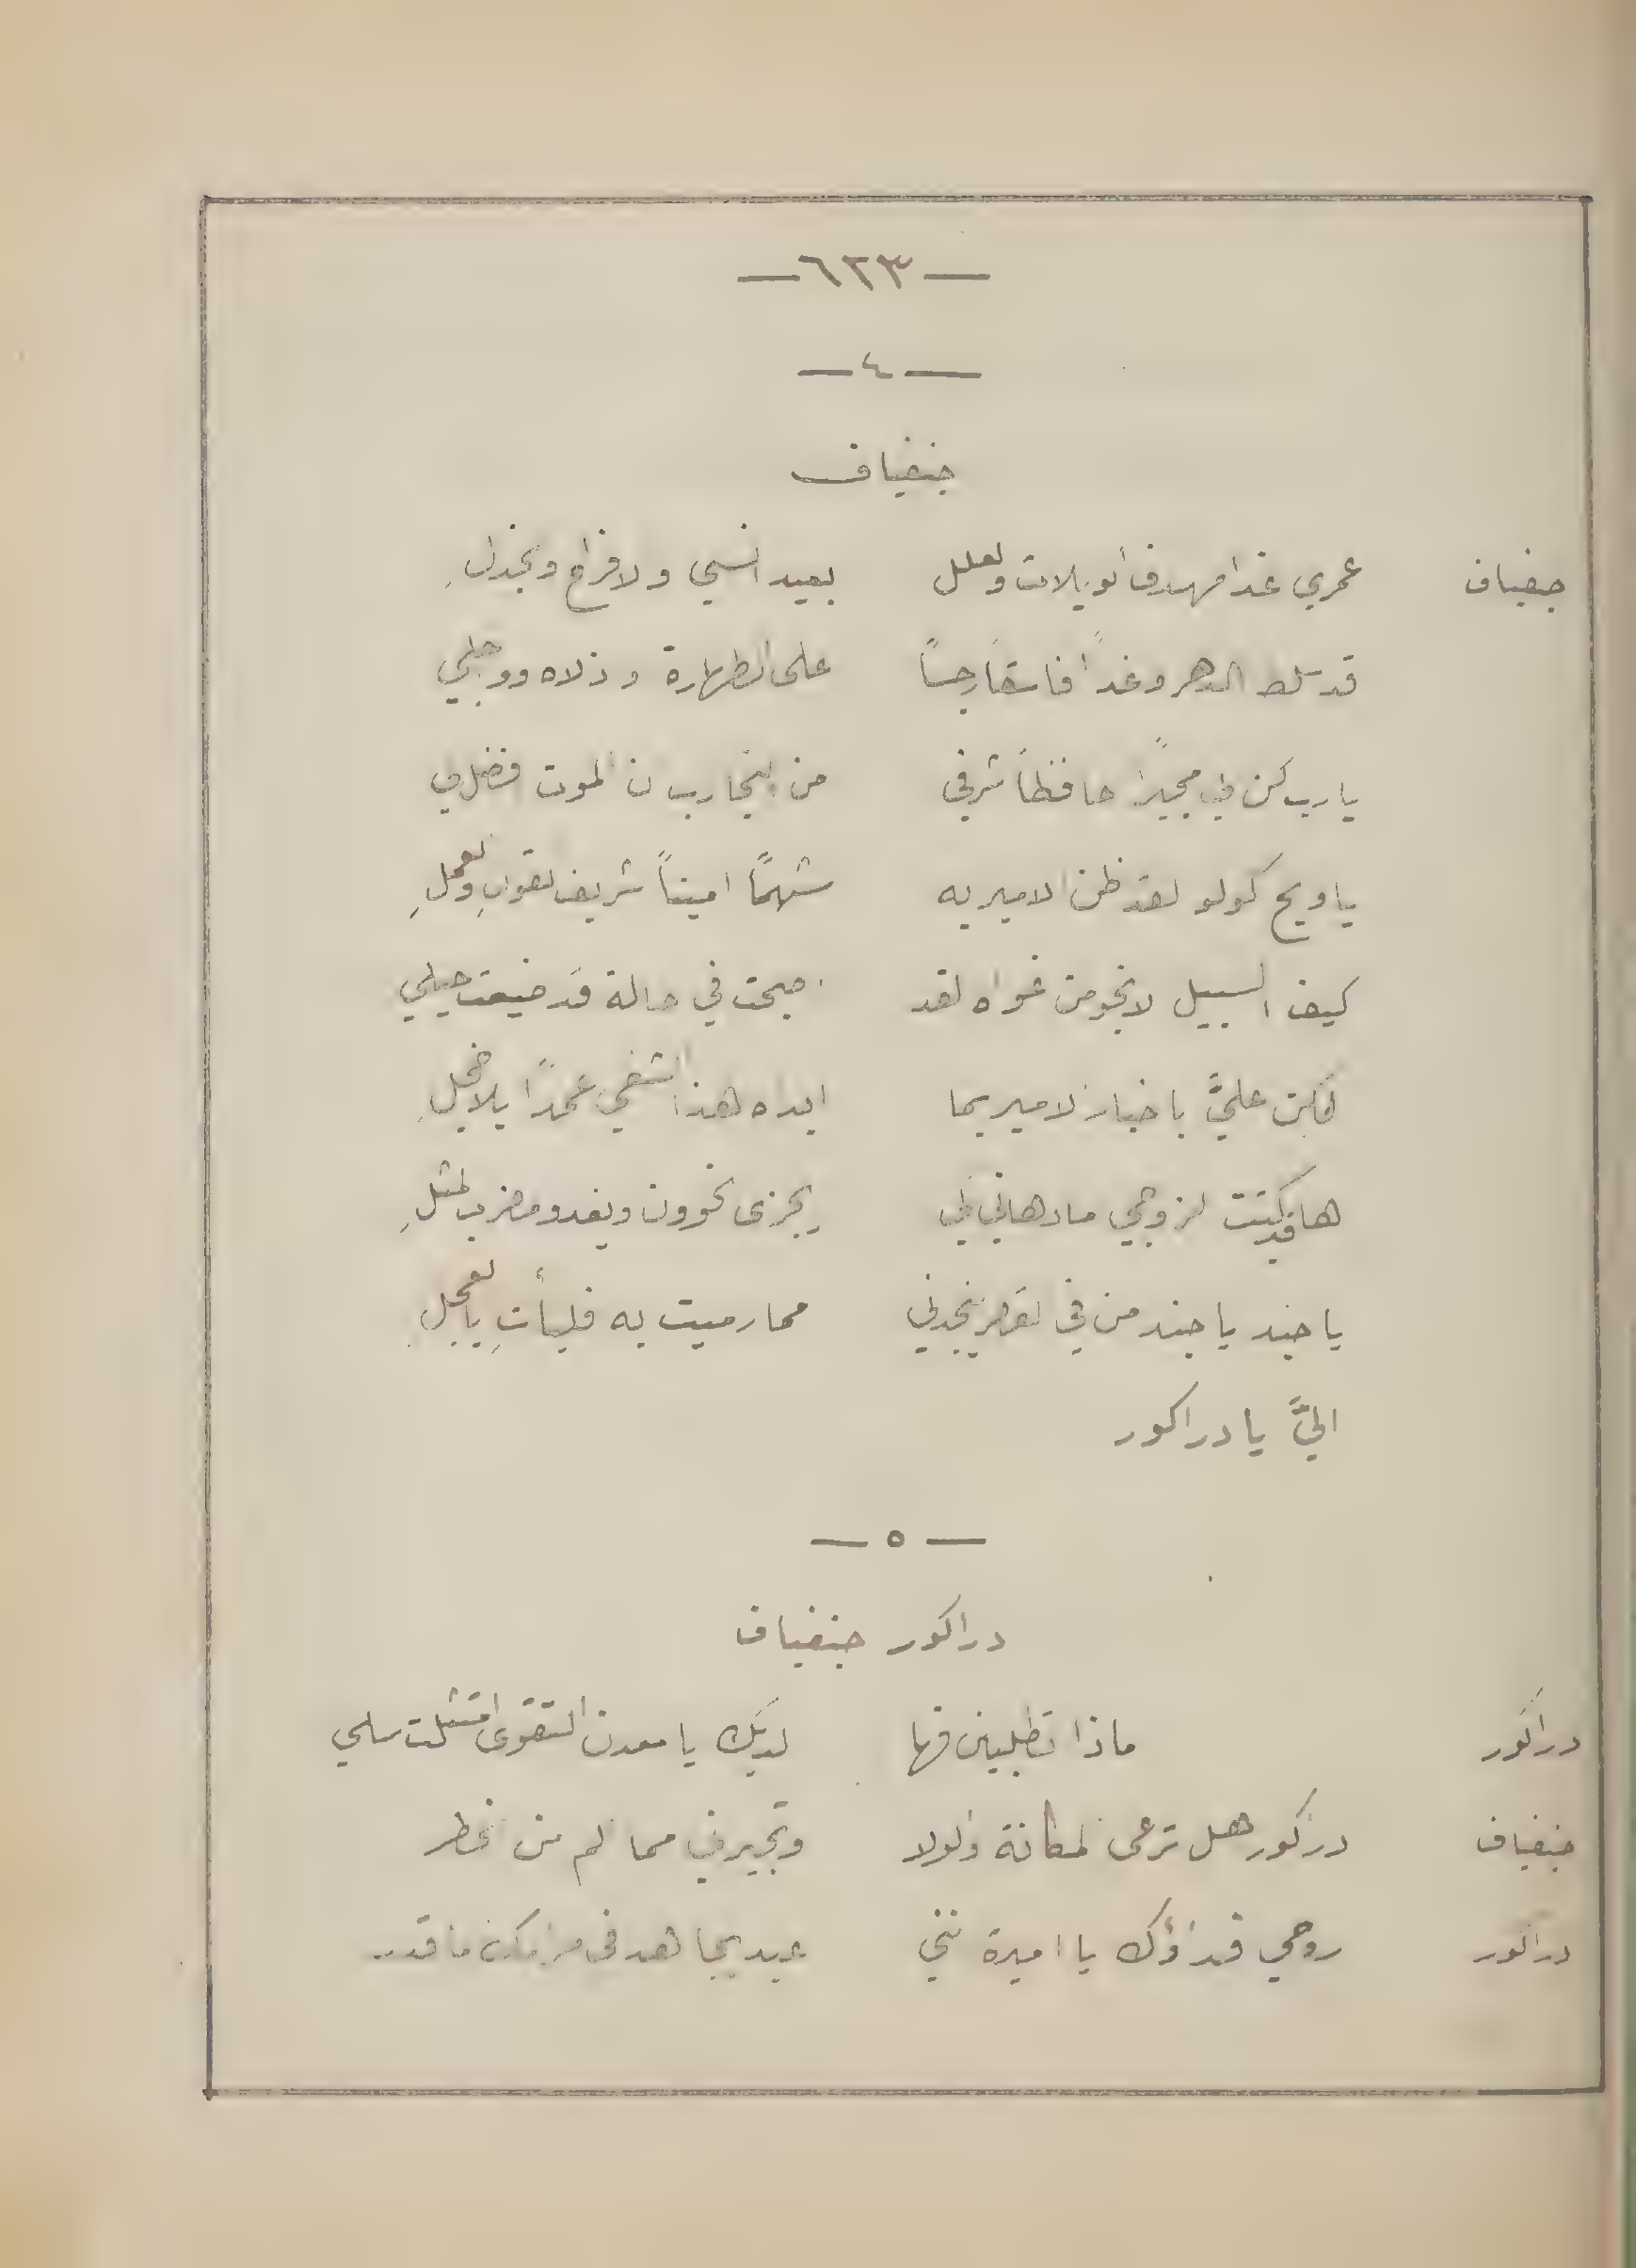 — ٦٢٣ —
— ٤ —
جنفياف
جنفياف عمري غدا مهدف الويلات والعلل بعيد انسي والافراح والجذلِ
قد سلط الدهر وغداً فاسقاً رجساً على الطهارة و ذلاه ووجلي
يا رب كن لي مجيرًا حافظاً شرفي من التجارب ان الموت افضل لي
يا ويح كولو لقد ظن الامير به شهمًا اميناً شريف القولِ والعملِ
كيف السبيل لانجو من غواه لقد اصبحت في حالة قد ضيعت حيلي
فكن عليَّ باخبار الامير بما ابداه هذا الشقي عمدًا بلا خجلِ
ها قد كتبت لزوجي ما دهاني لكي يجزى الخوون ويغدو مضرب المثلِ
يا جند يا جند من في القصر ينجدني مما رميت به فليأتِ بالعجل
اليَّ يا دراكور
— ٥ —
دراكور جنفياف
دراكور ماذا تطلبين فها لديك يا معدن التقوى امتثلت سلي
جنفياف دراكور هل ترعى المكانة والولا وتجيرني مما الم من الخطر
دراكور روحي فداؤك يا اميرة انني عبد يجاهد في مرامك ما قدر